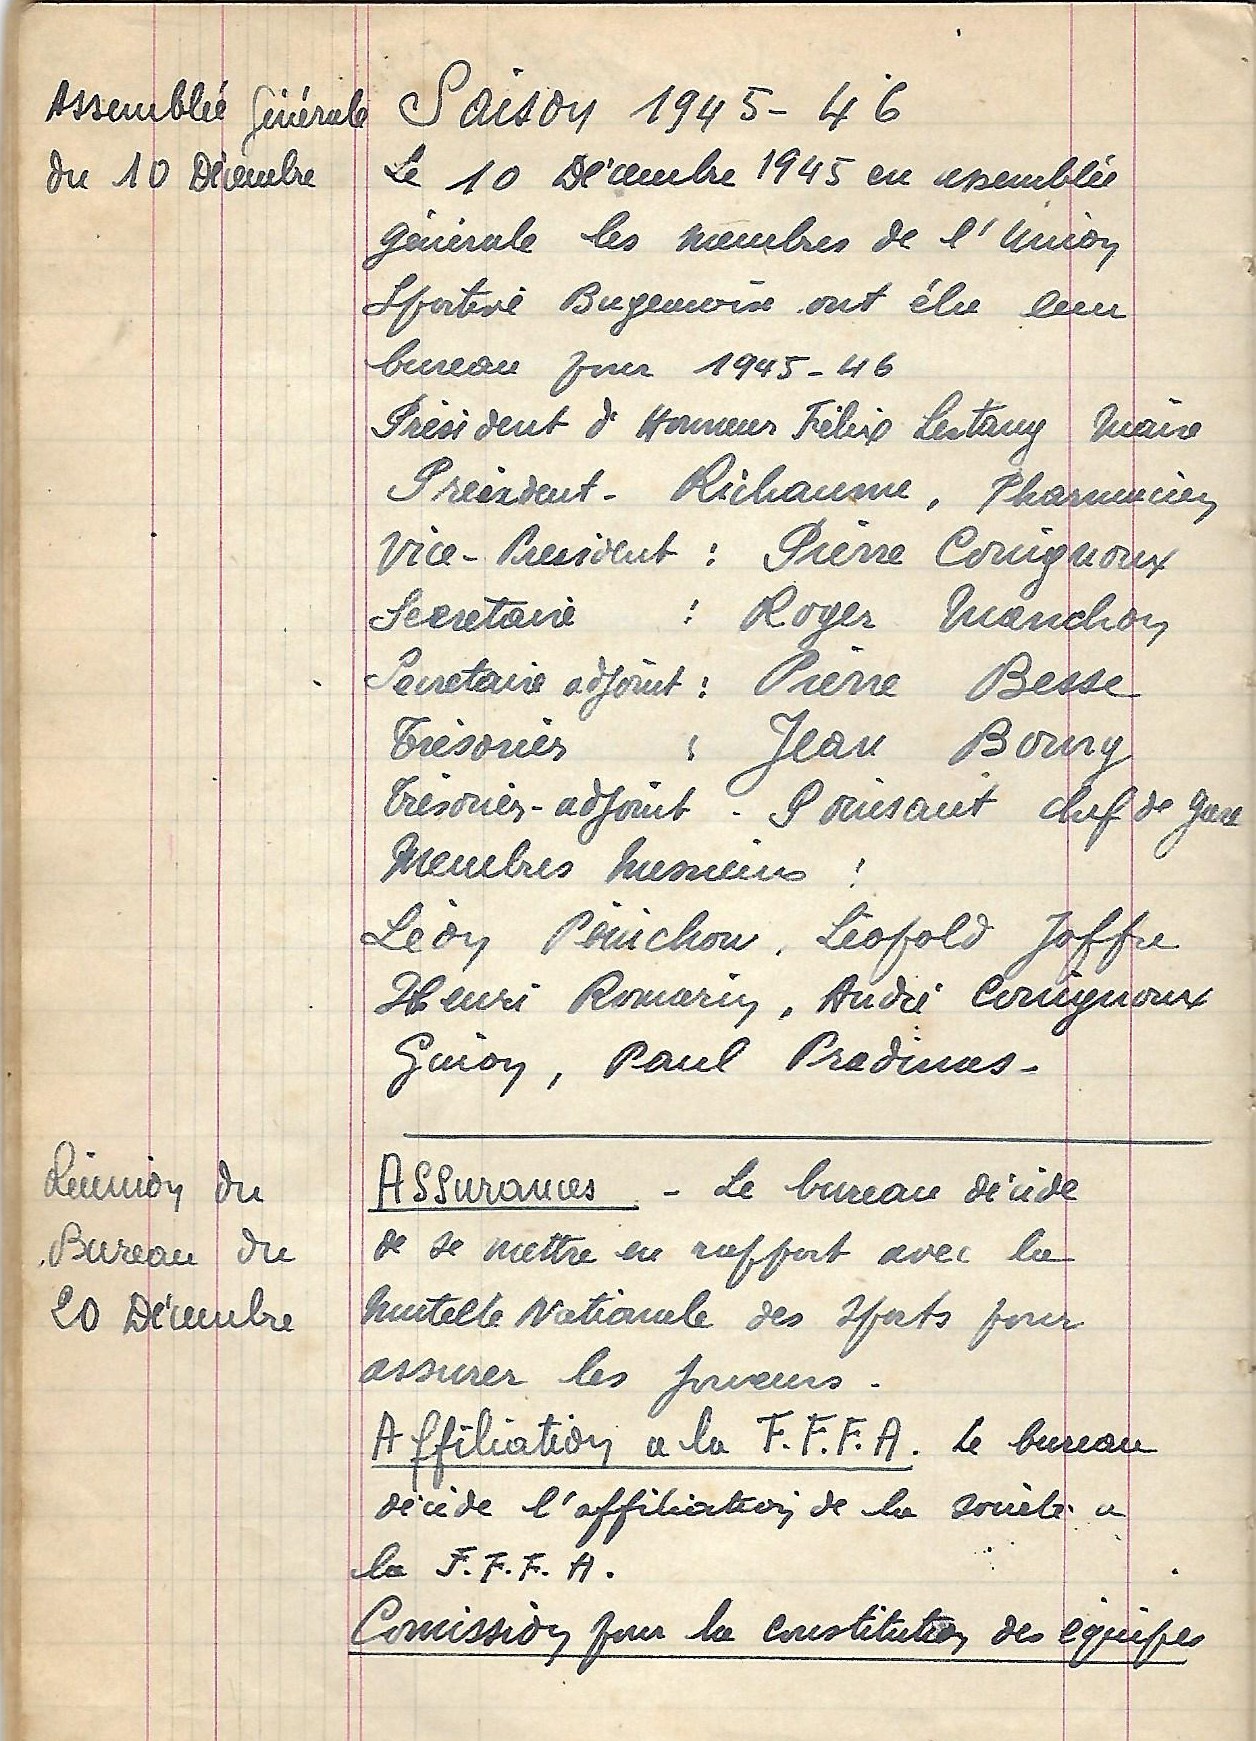 Assemblée Générale
du 10 Décembre
Saison 1945-46
Le 10 Décembre 1945 en assemblée
générale les membres de l'Union
Sportive Bugeacoise ont élu leur
bureau pour 1945-46
Président d'Honneur Félix Lestang Maire
Président - Richaume, Pharmacien
Vice-President : Pierre Couignoux
Secretaire : Roger Manchon
Secretaire adjoint : Pierre Besse
Trésorier : Jean Boury
Trésorier-adjoint - Souisant chef de gare
Membres
Léon Pénichou, Léopold Joffre
Henri Romarin, André Couignoux
Guion, Paul Pradinas -
Réunion du
Bureau du
20 Décembre
Assurances - Le bureau décide
de se mettre en rapport avec la
Mutelle Nationale des Sports pour
assurer les joueurs.
Affiliation a la F.F.F.A. Le bureau
décide l'affiliation de la société a
la F.F.F.A.
Comission pour la constitution des équipes